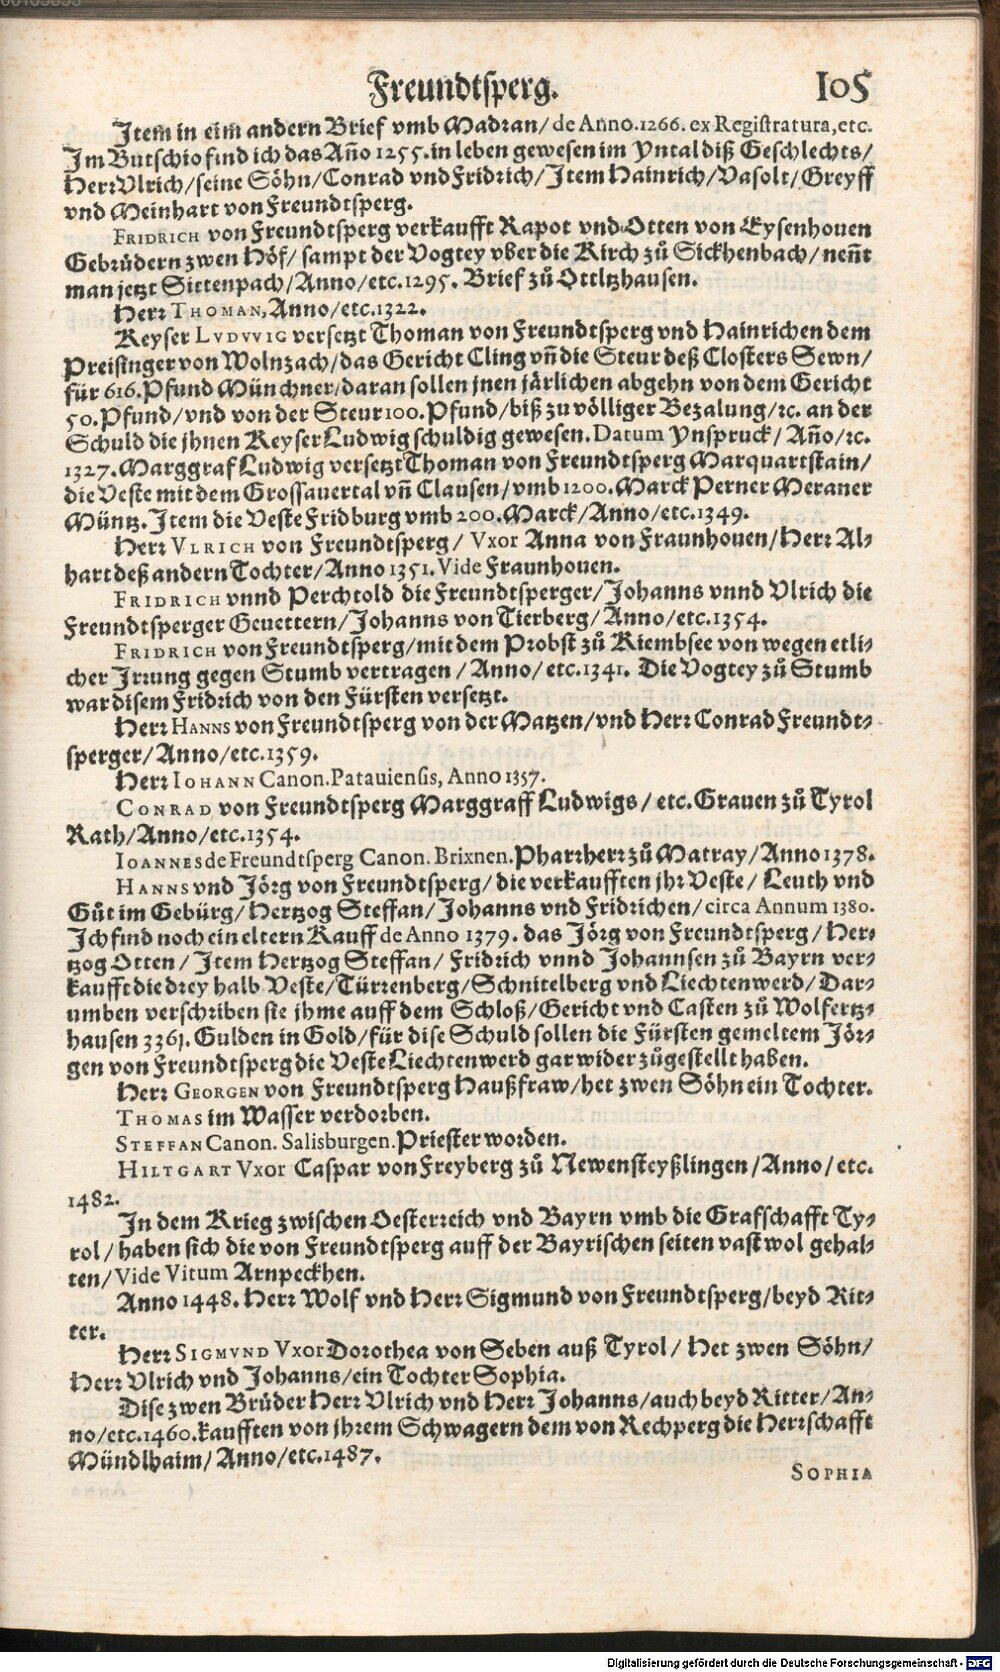 Freundtsperg. 105
Jtem in eim andern Brief vmb Madran/ de Anno.1266. ex Registratura, etc.
Jm Butschio find ich das Año 1255. in leben gewesen im Yntal diß Geschlechts/
Herr Vlrich/ seine Söhn/ Conrad vnd Fridrich/ Jtem Hainrich/ Vasolt/ Greyff
vnd Meinhart von Freundtsperg.
FRIDRICH von Freundtsperg verkaufft Rapot vnd Otten von Eysenhouen
Gebrüdern zwen Höf/ sampt der Vogtey vber die Kirch zů Sickhenbach/ neñt
man jetzt Sittenpach/ Anno/ etc. 1295. Brief zů Ottltzhausen.
Herr THOMAN, Anno/ etc. 1322.
Keyser LVDVVIG versetzt Thoman von Freundtsperg vnd Hainrichen dem
Preisinger von Wolnzach/ das Gericht Cling vñ die Steur deß Closters Sewn/
für 616. Pfund Münchner/ daran sollen jnen järlichen abgehn von dem Gericht
50. Pfund/ vnd von der Steur 100. Pfund/ biß zu völliger Bezalung/ ꝛc. an der
Schuld die jhnen Keyser Ludwig schuldig gewesen. Datum Ynspruck/ Año/ ꝛc.
1327. Marggraf Ludwig versetzt Thoman von Freundtsperg Marquartstain/
die Veste mit dem Grossauertal vñ Clausen/ vmb 1200. Marck Perner Meraner
Müntz. Jtem die Veste Fridburg vmb 200. Marck/ Anno/ etc. 1349.
Herr VLRICH von Freundtsperg/ Vxor Anna von Fraunhouen/ Herr Al⸗
hart deß andern Tochter/ Anno 1351. Vide Fraunhouen.
FRIDRICH vnnd Perchtold die Freundtsperger/ Johanns vnnd Vlrich die
Freundtsperger Geuettern/ Johanns von Tierberg/ Anno/ etc. 1354.
FRIDRICH von Freundtsperg/ mit dem Probst zů Kiembsee von wegen etli⸗
cher Jrrung gegen Stumb vertragen/ Anno/ etc. 1341. Die Vogtey zů Stumb
war disem Fridrich von den Fürsten versetzt.
Herr HANNS von Freundtsperg von der Matzen/ vnd Herr Conrad Freundt⸗
sperger/ Anno/ etc. 1359.
Herr IOHANN Canon. Patauiensis, Anno 1357.
CONRAD von Freundtsperg Marggraff Ludwigs/ etc. Grauen zů Tyrol
Rath/ Anno/ etc. 1354.
IOANNES de Freundtsperg Canon. Brixnen. Pharrherr zů Matray/ Anno 1378.
HANNS vnd Jörg von Freundtsperg/ die verkaufften jhr Veste/ Leuth vnd
Gůt im Gebürg/ Hertzog Steffan/ Johanns vnd Fridrichen/ circa Annum 1380.
Jch find noch ein eltern Kauff de Anno 1379. das Jörg von Freundtsperg/ Her⸗
tzog Otten/ Jtem Hertzog Steffan/ Fridrich vnnd Johannsen zů Bayrn ver⸗
kaufft die drey halb Veste/ Türrenberg/ Schnitelberg vnd Liechtenwerd/ Dar⸗
umben verschriben sie jhme auff dem Schloß/ Gericht vnd Casten zů Wolfertz⸗
hausen 3361. Gulden in Gold/ für dise Schuld sollen die Fürsten gemeltem Jör⸗
gen von Freundtsperg die Veste Liechtenwerd gar wider zůgestellt haben.
Herr GEORGEN von Freundtsperg Haußfraw/ het zwen Söhn ein Tochter.
THOMAS im Wasser verdorben.
STEFFAN Canon. Salisburgen. Priester worden.
HILTGART Vxor Caspar von Freyberg zů Newensteyßlingen/ Anno/ etc.
1482.
Jn dem Krieg zwischen Oesterreich vnd Bayrn vmb die Grafschafft Ty⸗
rol/ haben sich die von Freundtsperg auff der Bayrischen seiten vast wol gehal⸗
ten/ Vide Vitum Arnpeckhen.
Anno 1448. Herr Wolf vnd Herr Sigmund von Freundtsperg/ beyd Rit⸗
ter.
Herr SIGMVND Vxor Dorothea von Seben auß Tyrol/ Het zwen Söhn/
Herr Vlrich vnd Johanns/ ein Tochter Sophia.
Dise zwen Brüder Herr Vlrich vnd Herr Johanns/ auch beyd Ritter/ An⸗
no/ etc. 1460. kaufften von jhrem Schwagern dem von Rechperg die Herrschafft
Mündlhaim/ Anno/ etc. 1487.
SOPHIA
Digitalisierung gefördert durch die Deutsche Forschungsgemeinschaft - DFG